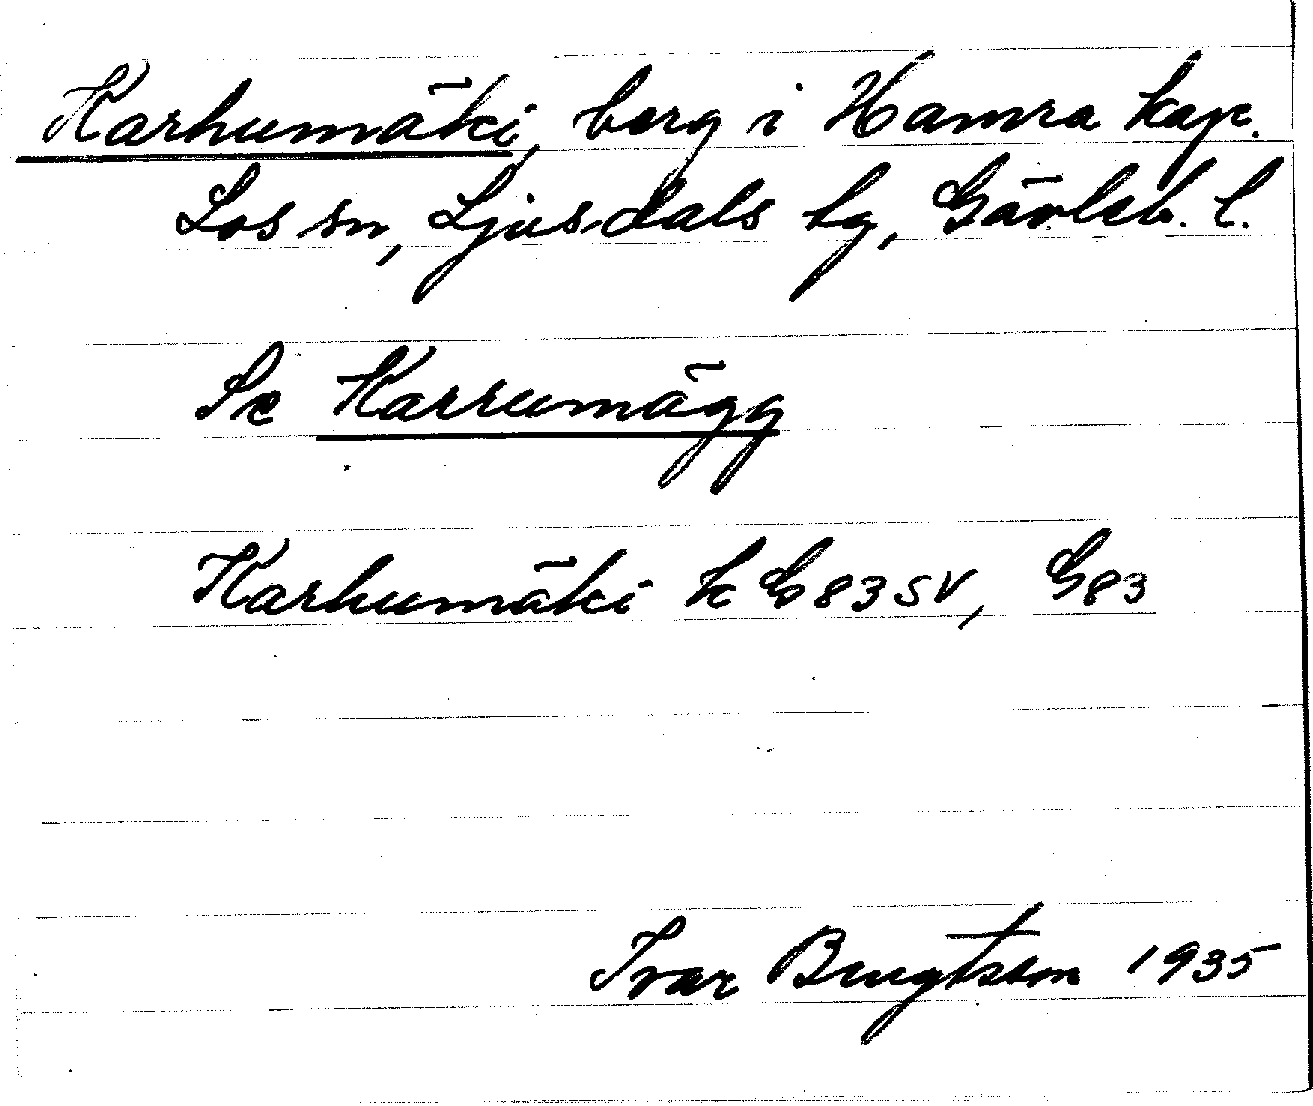 Karhumäki, berg i Hamra kap.
Los sn, Ljusdals tg, Gävleb. l.
Se Karrumägg
Karhumäki k G83SV, G83
Ivar Bengtsson 1935